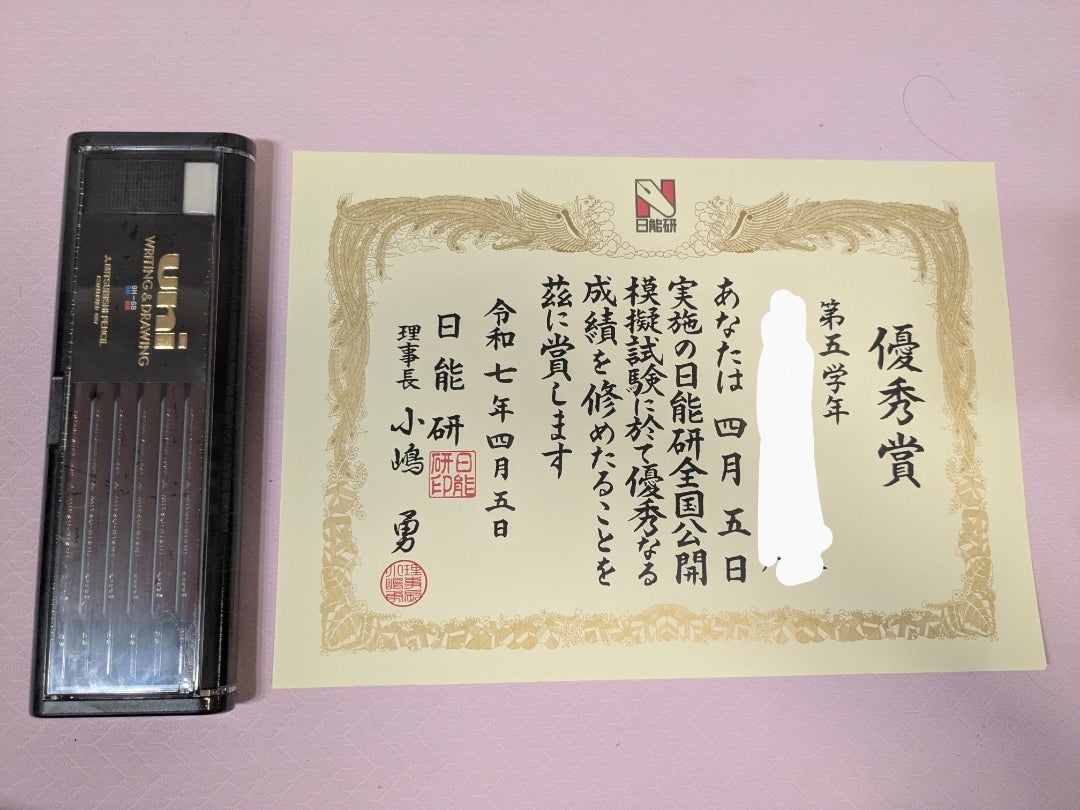 uni
WRITING & DRAWING
9H-6B
MITSUBISHI PENCIL
日能研
優秀賞
第五学年
あなたは四月五日
実施の日能研全国公開
模擬試験に於て優秀なる
成績を修めたることを
茲に賞します
令和七年四月五日
日能研
日能研印
理事長 小嶋 勇